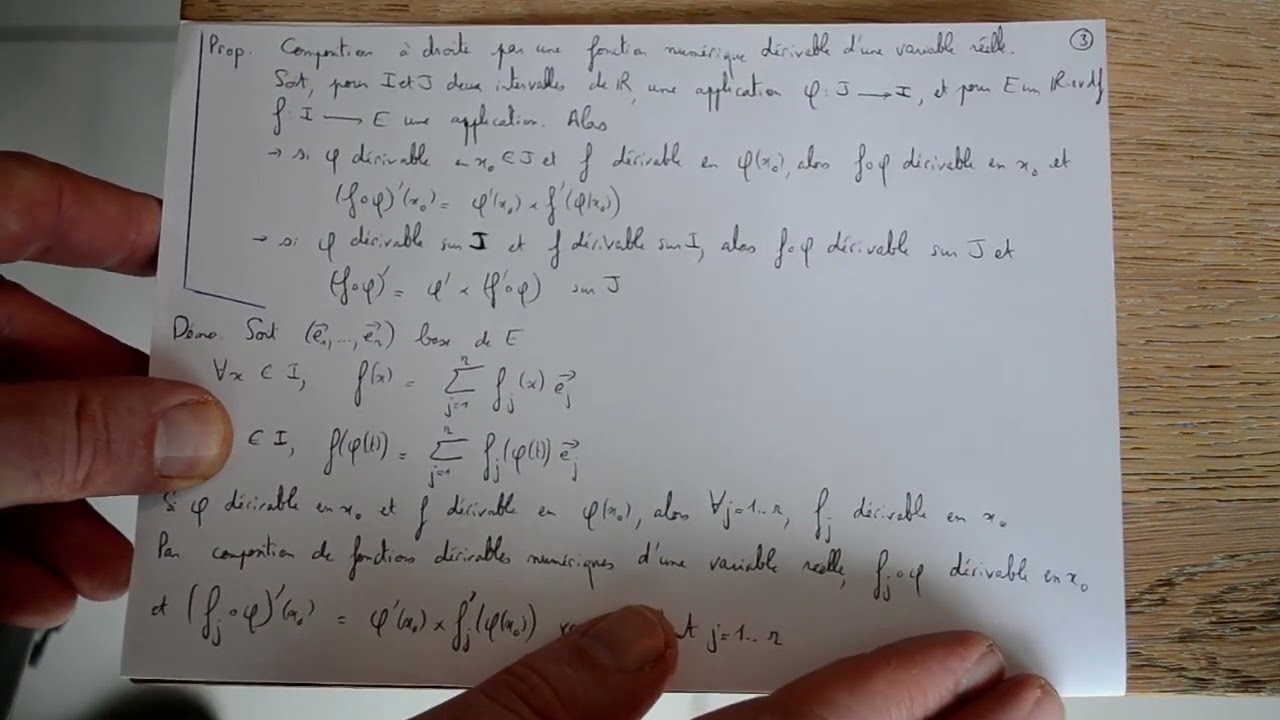 Prop. Composition à droite par une fonction numérique dérivable d'une variable réelle. ③
Soit, pour I et J deux intervalles de ℝ, une application φ : J ⟶ I, et pour E un ℝ-evdf
f : I ⟶ E une application. Alors
→ si φ dérivable en x₀ ∈ J et f dérivable en φ(x₀), alors f∘φ dérivable en x₀ et
(f∘φ)'(x₀) = φ'(x₀) × f'(φ(x₀))
→ si φ dérivable sur J et f dérivable sur I, alors f∘φ dérivable sur J et
(f∘φ)' = φ' × (f'∘φ) sur J
Démo. Soit (e⃗₁, ..., e⃗ₙ) base de E
∀x ∈ I, f(x) = ∑_{j=1}^{n} f_j(x) e⃗_j
∈ I, f(φ(t)) = ∑_{j=1}^{n} f_j(φ(t)) e⃗_j
Si φ dérivable en x₀ et f dérivable en φ(x₀), alors ∀j=1..n, f_j dérivable en x₀
Par composition de fonctions dérivables numériques d'une variable réelle, f_j∘φ dérivable en x₀
et (f_j∘φ)'(x₀) = φ'(x₀) × f_j'(φ(x₀)) j=1..n